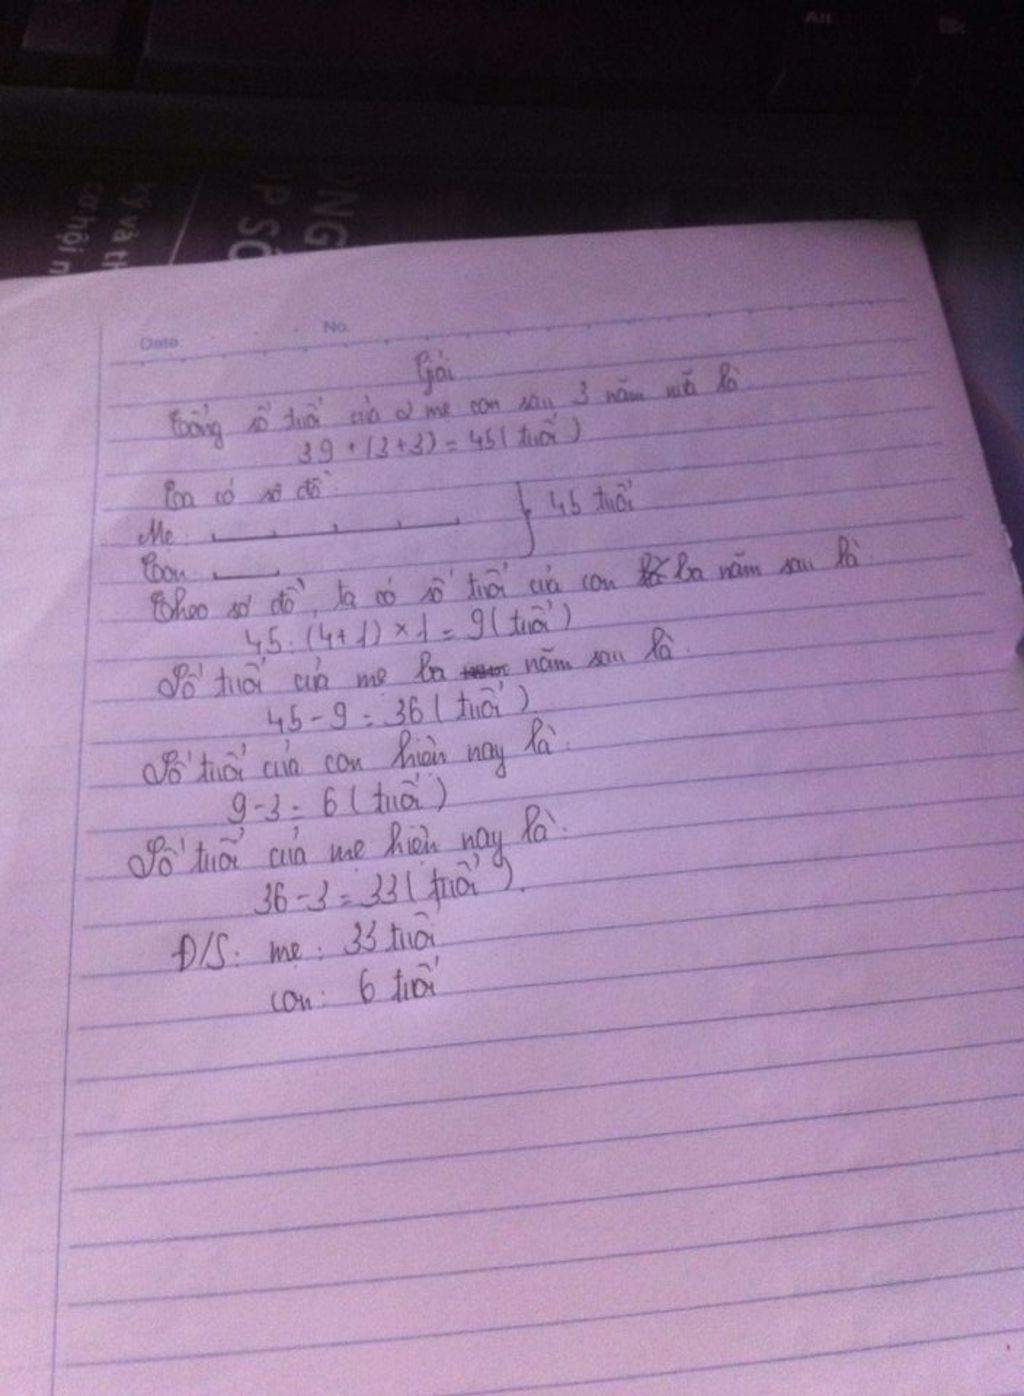 Alt
ONG
P SỐ
kỹ và th
cơ hội n
Date No.
Giải
Tổng số tuổi của 2 mẹ con sau 3 năm nữa là
39 + (3+3) = 45 (tuổi)
Ta có sơ đồ:
Mẹ: 45 tuổi
Con:
Theo sơ đồ, ta có số tuổi của con ba năm sau là
45 : (4+1) × 1 = 9 (tuổi)
Số tuổi của mẹ ba năm sau là.
45 - 9 = 36 (tuổi)
Số tuổi của con hiện nay là:
9 - 3 = 6 (tuổi)
Số tuổi của mẹ hiện nay là:
36 - 3 = 33 (tuổi).
Đ/S: mẹ: 33 tuổi
con: 6 tuổi